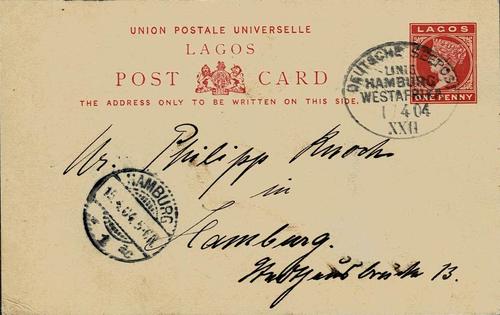 UNION POSTALE UNIVERSELLE
LAGOS
POST CARD
THE ADDRESS ONLY TO BE WRITTEN ON THIS SIDE.
LAGOS
ONE PENNY
DEUTSCHE SEEPOST
LINIE
HAMBURG
WESTAFRIKA
4 04
XXII
Philipp
in
Hamburg.
13.
HAMBURG
1